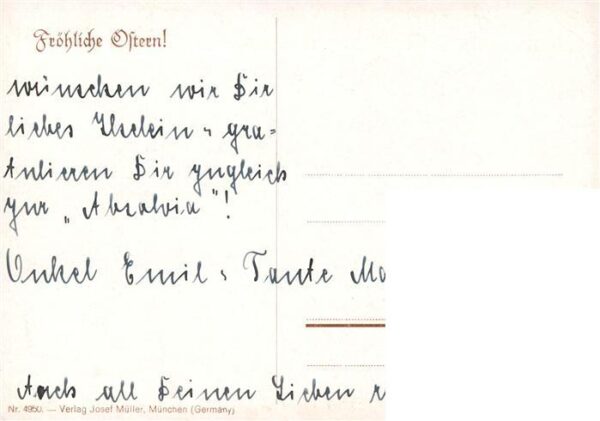 Fröhliche Ostern!
wünschen wir Dir
liebes Ilselein u gra-
tulieren Dir zugleich
zur „Absolvia"!
Onkel Emil u Tante
Auch all Deinen Lieben
Nr. 4950. — Verlag Josef Müller, München (Germany)